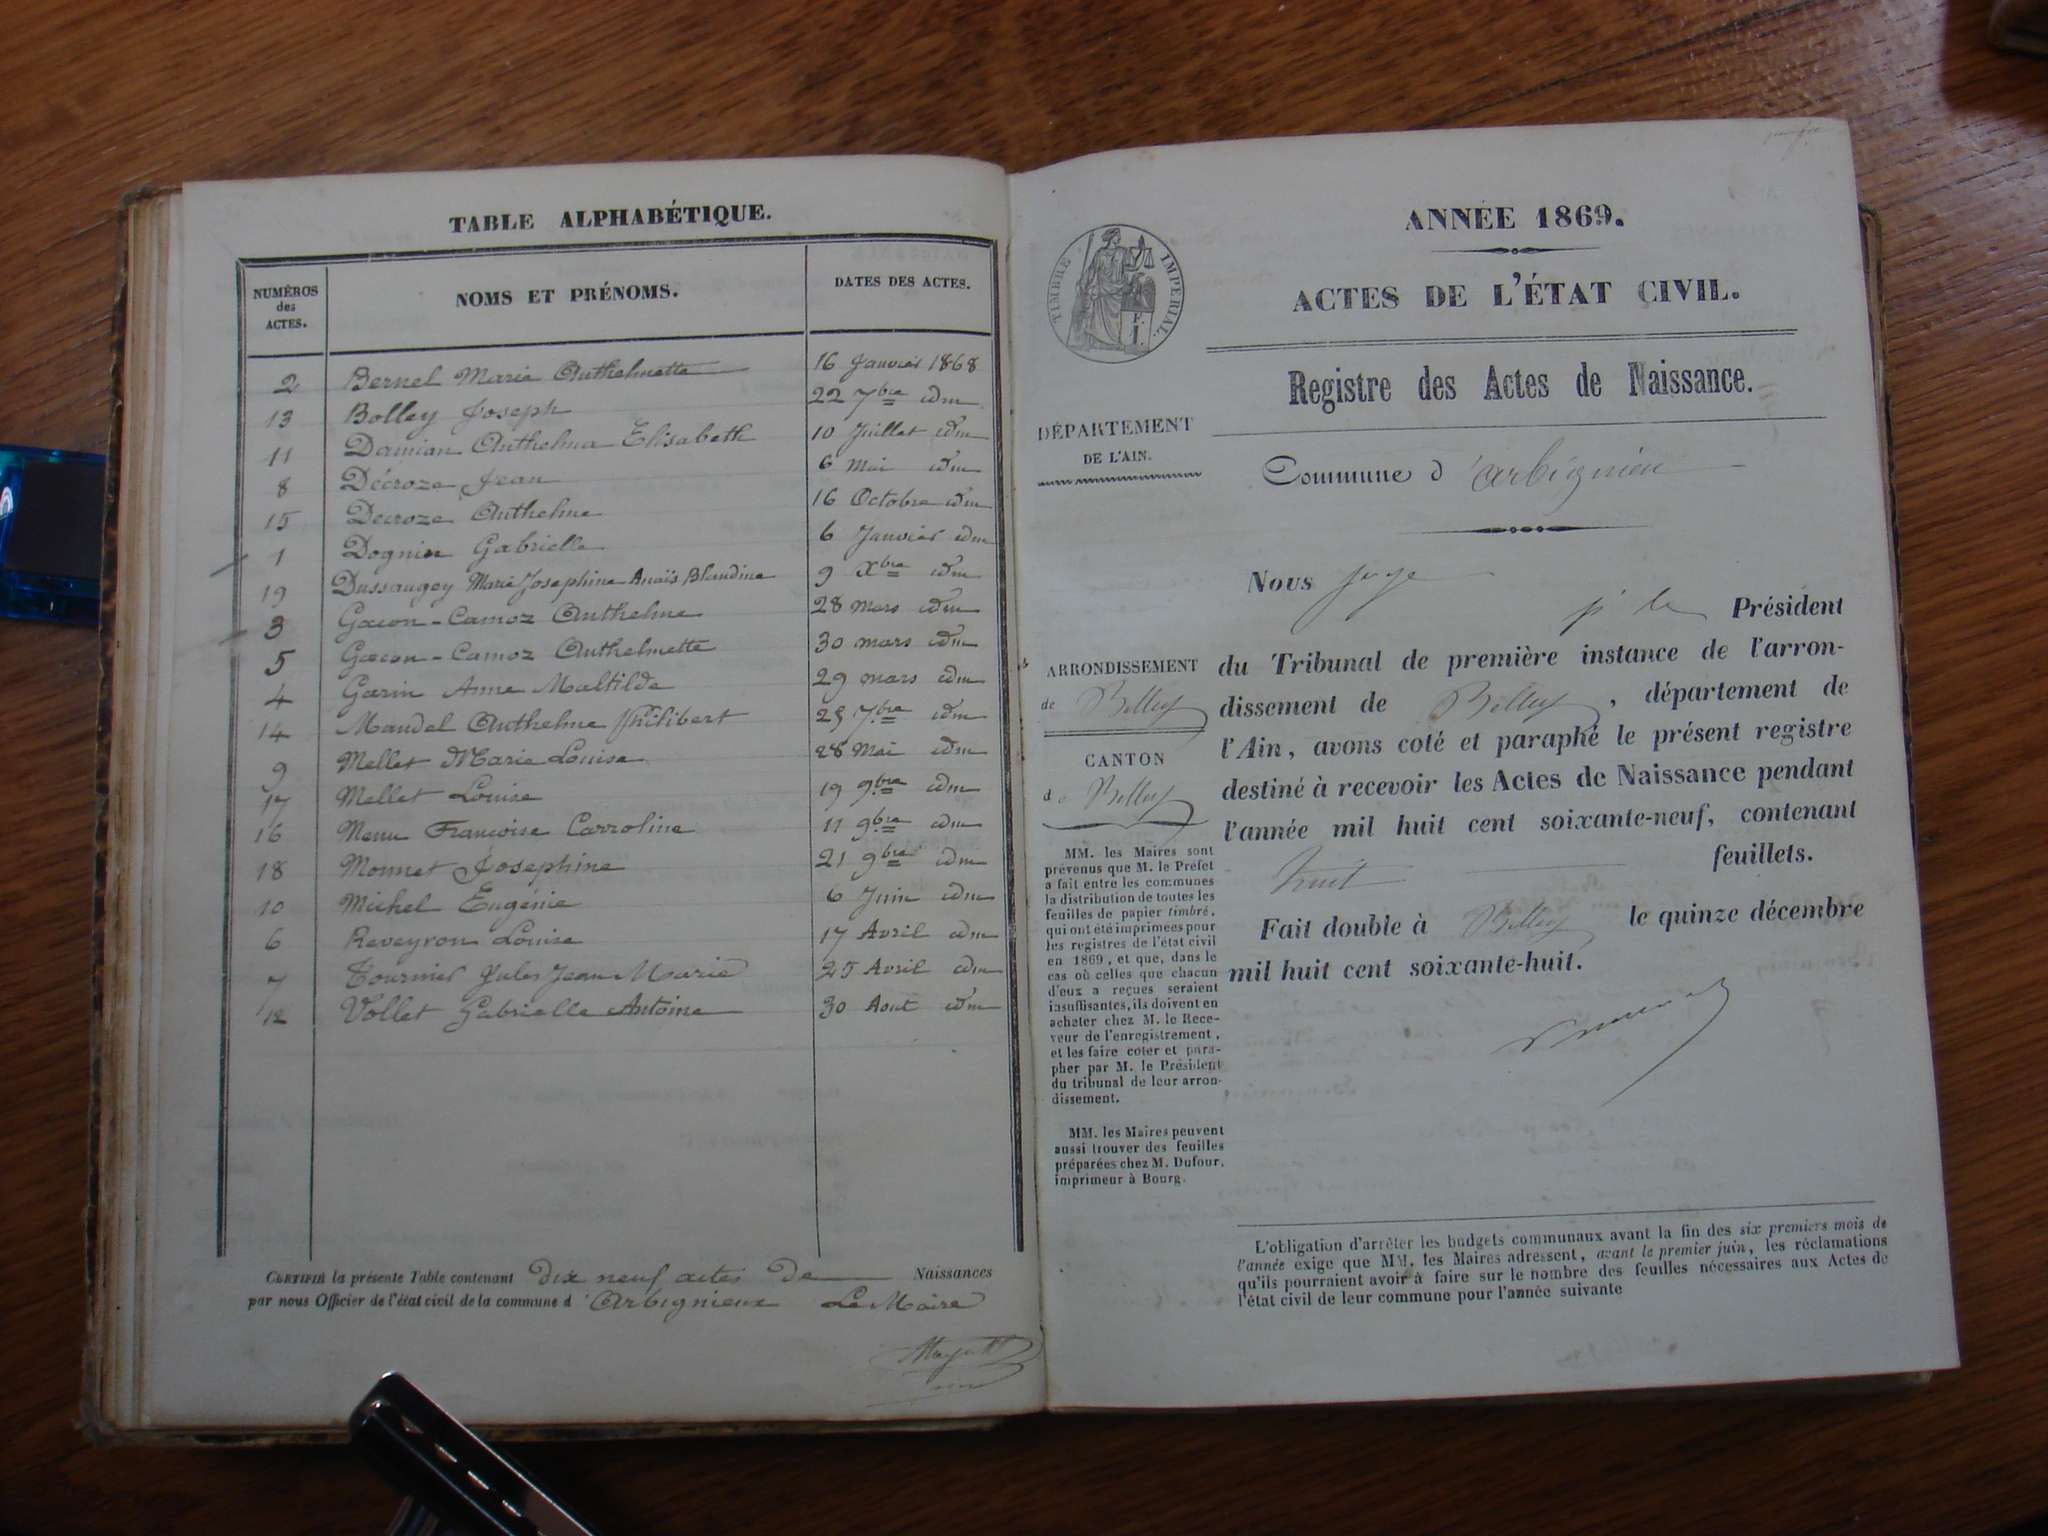 TABLE ALPHABÉTIQUE.
NUMÉROS des ACTES. NOMS ET PRÉNOMS. DATES DES ACTES.
2 Bernel Marie Anthelmette 16 Janvier 1868
13 Bolley Joseph 22 7bre idm
11 Damian Anthelma Elisabeth 10 Juillet idm
8 Décroze Jean 6 Mai idm
15 Decroze Anthelme 16 Octobre idm
1 Dognin Gabrielle 6 Janvier idm
19 Dussaugey Marie Josephine Anaïs Blandine 9 Xbre idm
3 Gacon-Camoz Anthelme 28 mars idm
5 Gacon-Camoz Anthelmette 30 mars idm
4 Garin Anne Maltilde 29 mars idm
14 Mandel Anthelme Philibert 25 7bre idm
9 Mellet Marie Louise 28 Mai idm
17 Mellet Louise 19 9bre idm
16 Menu Françoise Carroline 11 9bre idm
18 Monnet Josephine 21 9bre idm
10 Michel Eugénie 6 Juin idm
6 Reveyron Louise 17 Avril idm
7 Tournier Jules Jean Marie 25 Avril idm
12 Vollet Gabrielle Antoine 30 Aout idm
CERTIFIÉ la présente Table contenant Dix neuf actes De Naissances
par nous Officier de l'état civil de la commune d'Arbignieux Le Maire
TIMBRE IMPERIAL.
ANNÉE 1869.
ACTES DE L'ÉTAT CIVIL.
Registre des Actes de Naissance.
DÉPARTEMENT
DE L'AIN.
Commune d'Arbignieu
Nous Juge
pr le Président
ARRONDISSEMENT
de Belley
CANTON
de Belley
du Tribunal de première instance de l'arron-
dissement de Belley, département de
l'Ain, avons coté et paraphé le présent registre
destiné à recevoir les Actes de Naissance pendant
l'année mil huit cent soixante-neuf, contenant
huit feuillets.
Fait double à Belley le quinze décembre
mil huit cent soixante-huit.
MM. les Maires sont
prévenus que M. le Préfet
a fait entre les communes
la distribution de toutes les
feuilles de papier timbré,
qui ont été imprimées pour
les registres de l'état civil
en 1869, et que, dans le
cas où celles que chacun
d'eux a reçues seraient
insuffisantes, ils doivent en
acheter chez M. le Rece-
veur de l'enregistrement,
et les faire coter et para-
pher par M. le Président
du tribunal de leur arron-
dissement.
MM. les Maires peuvent
aussi trouver des feuilles
préparées chez M. Dufour,
imprimeur à Bourg.
L'obligation d'arrêter les budgets communaux avant la fin des six premiers mois de
l'année exige que MM. les Maires adressent, avant le premier juin, les réclamations
qu'ils pourraient avoir à faire sur le nombre des feuilles nécessaires aux Actes de
l'état civil de leur commune pour l'année suivante